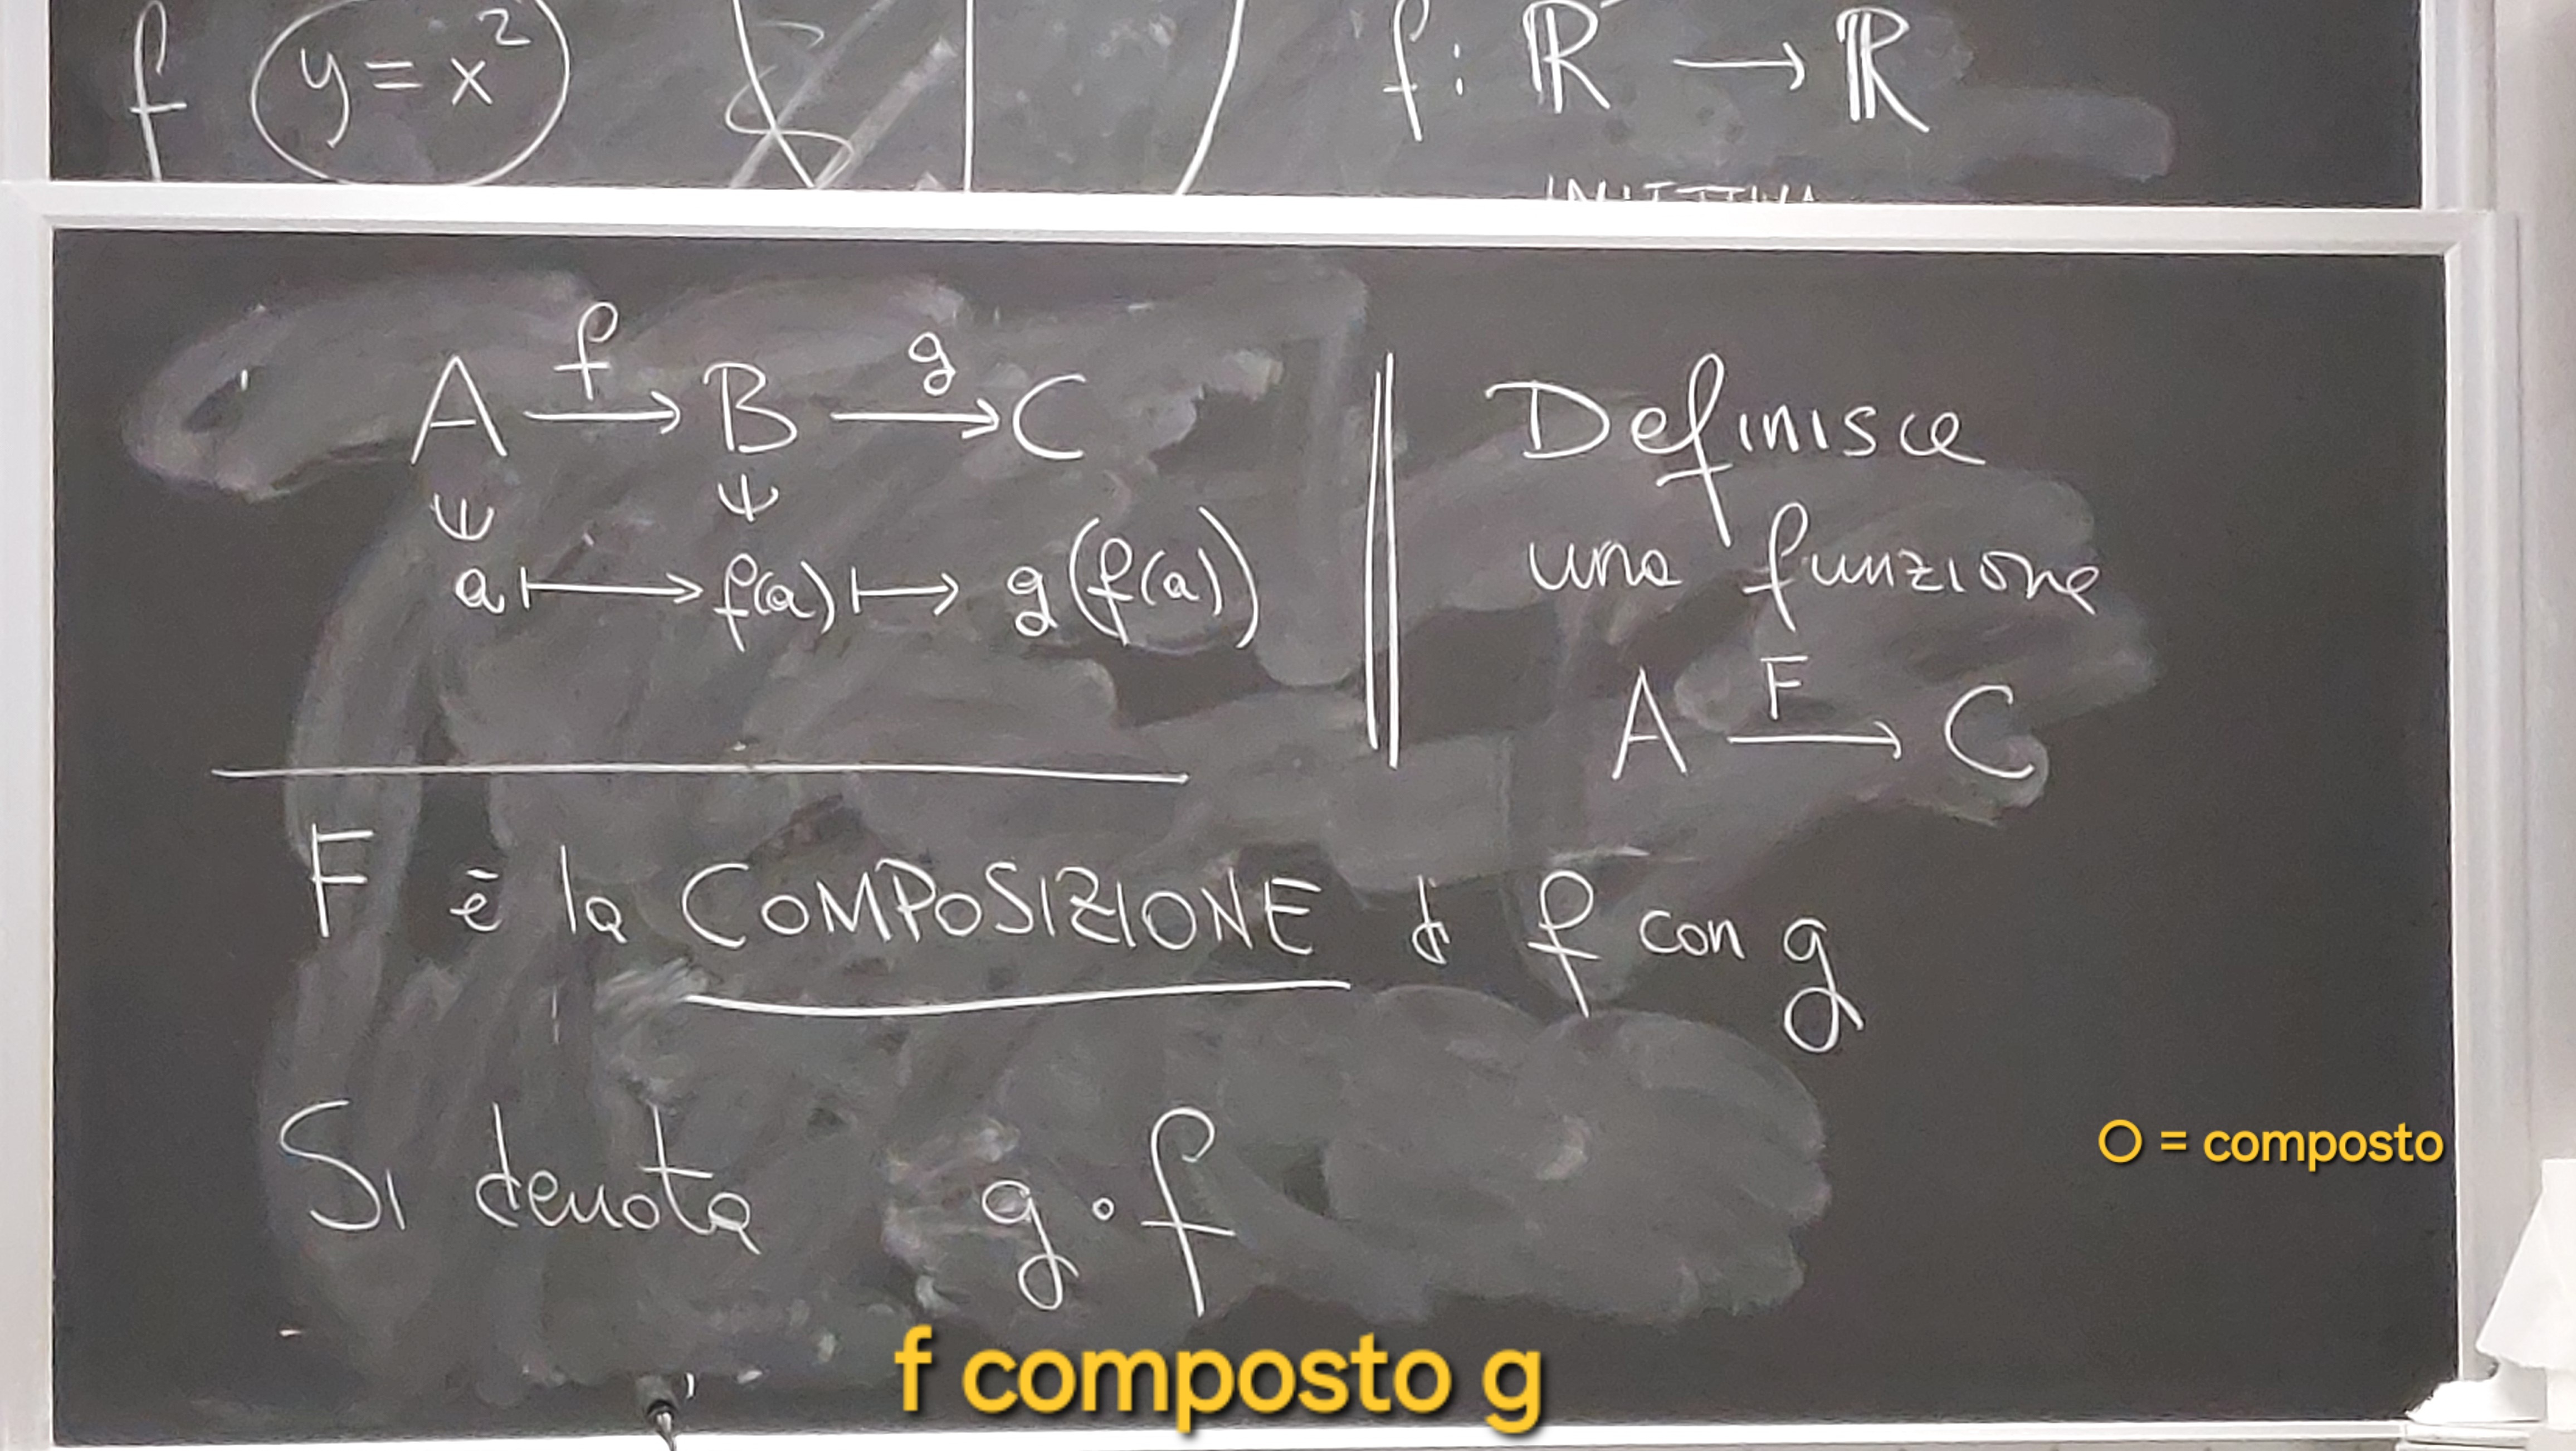 f y = x² f: ℝ → ℝ
INIETTIVA
A f→ B g→ C
ψ ψ
a ⟼ f(a) ⟼ g(f(a))
Definisce
una funzione
A F→ C
F è la COMPOSIZIONE di f con g
Si denota g∘f
O = composto
f composto g